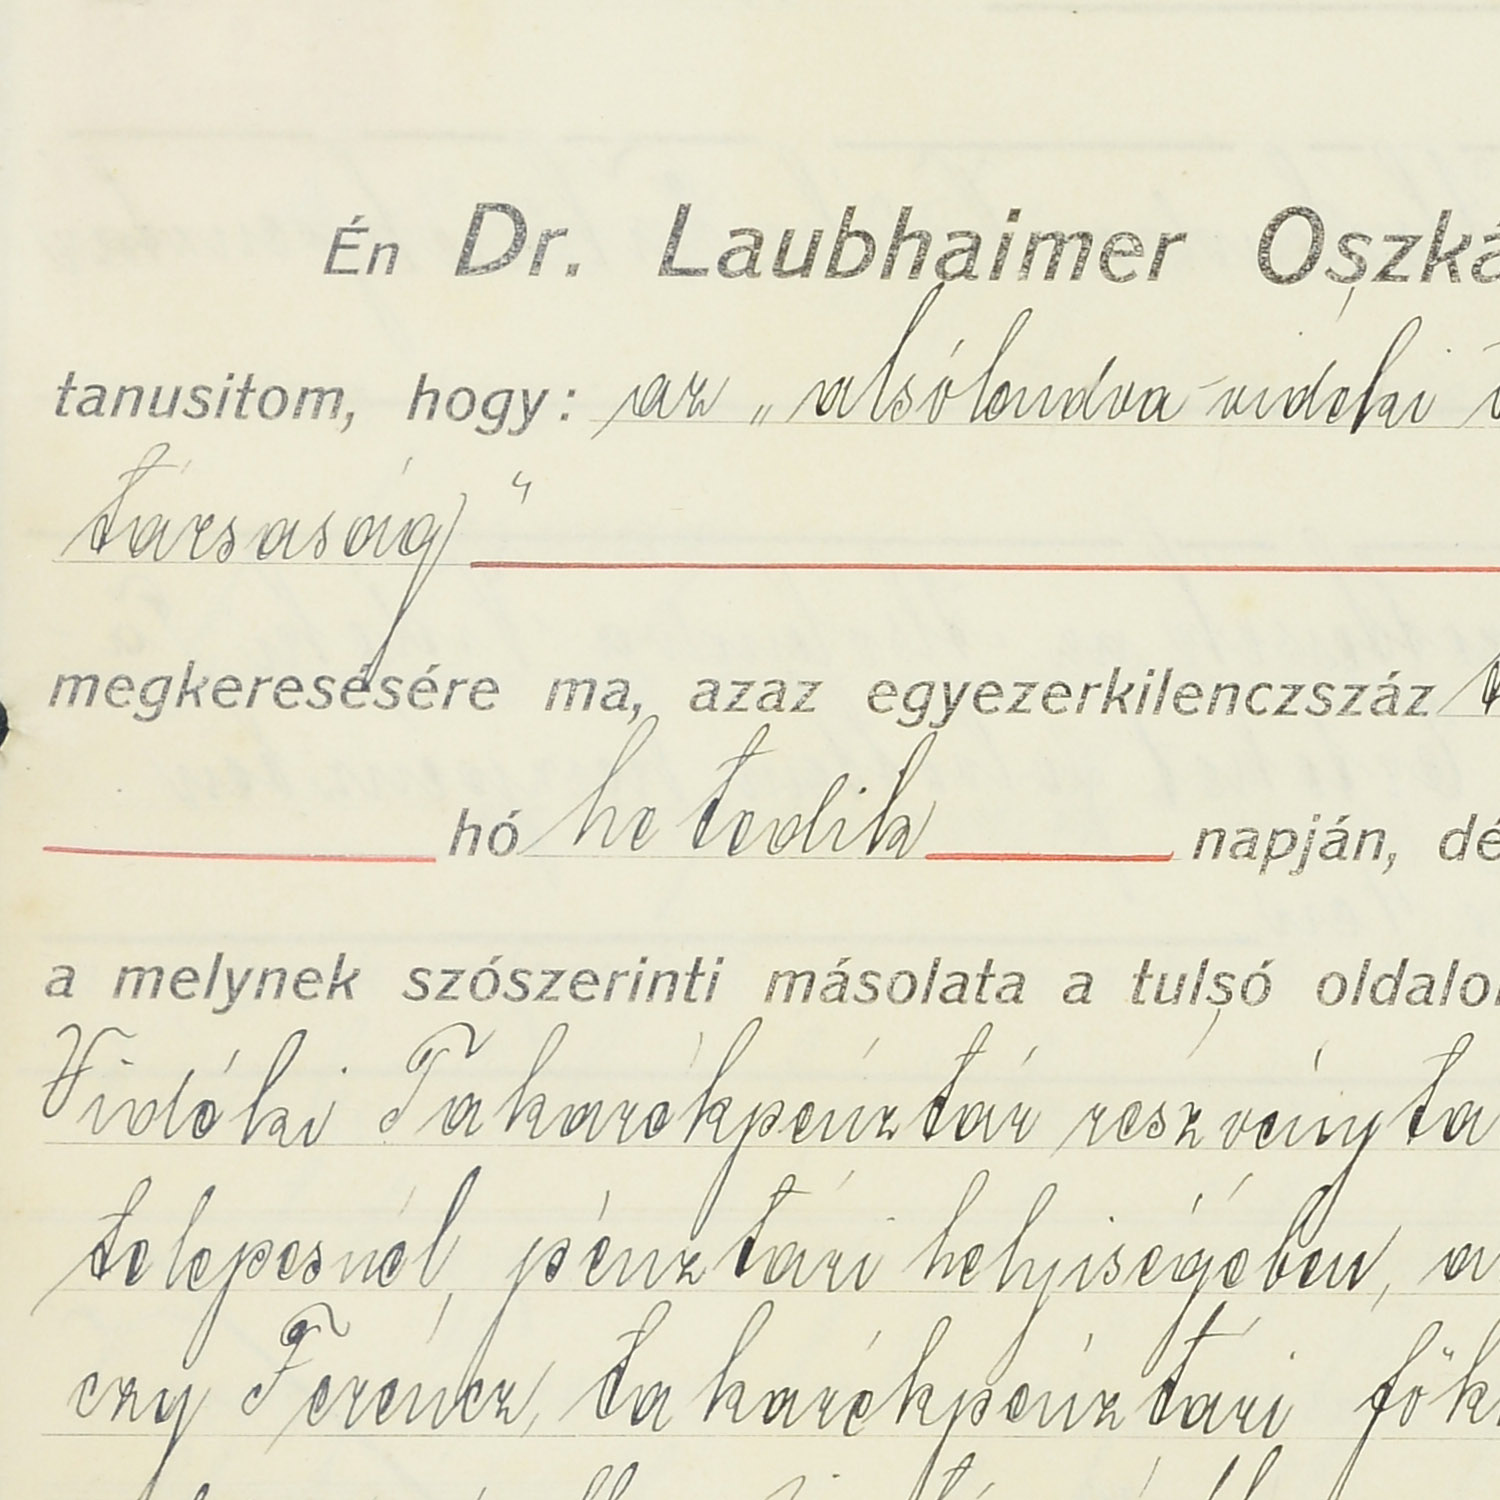 Én Dr. Laubhaimer Oszká
tanusitom, hogy: az „alsólendva-vidéki
társaság"
megkeresésére ma, azaz egyezerkilenczszáz
hó hetedik napján, dé
a melynek szószerinti másolata a tulsó oldalon
Vidéki Takarékpénztár részvényta
telepesnél, pénztári helyiségében, a
czy Ferencz, takarékpénztári főkö